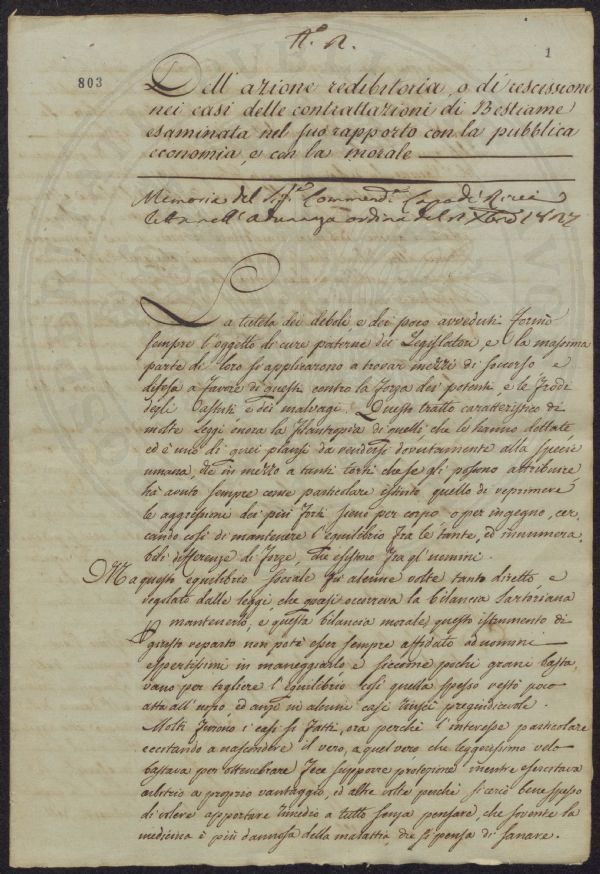 N.º 2.
1
803
Dell' azione redibitoria, o di rescissione
nei casi delle contrattazioni di Bestiame
esaminata nel suo rapporto con la pubblica
economia, e con la morale
Memoria del Sig.
letta nell' adunanza ordina del 1827
La tutela dei deboli e dei poco avveduti formò
sempre l'oggetto di cure paterne dei Legislatori, e la massima
parte di loro si applicarono a trovar mezzi di soccorso e
difesa a favore di questi contro la forza dei potenti, e le frodi
degli astuti e dei malvagi. Questo tratto caratteristico di
molte Leggi onora la filantropia di quelli che le hanno dettate
ed è uno di quei plausi da rendersi dovutamente alla specie
umana, che in mezzo a tanti torti che se gli possono attribuire
ha avuto sempre come particolare istinto quello di reprimere
le aggressioni dei più forti sieno per corpo o per ingegno, cer-
cando così di mantenere l'equilibrio fra le tante, ed innumera-
bili differenze di forze, che esistono fra gl'uomini.
Ma questo equilibrio sociale fu alcune volte tanto diretto, e
regolato dalle leggi, che quasi occorreva la bilancia Sartoriana
p mantenerlo, e questa bilancia morale, questo istrumento di
giusto reparto non potè esser sempre affidato ad uomini
espertissimi in maneggiarlo e siccome pochi grani basta-
vano per togliere l'equilibrio così quella spesso restò poco
atta all'uopo, ed anzi in alcuni casi riuscì pregiudicevole.
Molti furono i casi sì fatti, ora perchè l'interesse particolare
eccitando a nascondere il vero, a quel vero che leggerissimo velo
bastava per ottenebrare fece supporre protezione mentre esercitava
arbitrio a proprio vantaggio, ed altre volte perchè si cercò bene spesso
di volere apportare rimedio a tutto senza pensare, che sovente la
medicina è più dannosa della malattia, che si pensa di sanare.